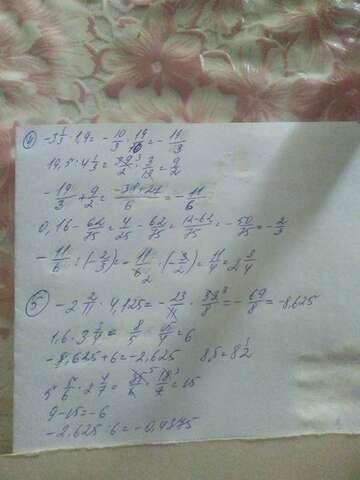 ④ -3 1/3 · 1,9 = - 10/3 · 19/10 = - 19/3
19,5 : 4 1/3 = 39/2 · 3/13 = 9/2
- 19/3 + 9/2 = -38+27/6 = - 11/6
0,16 - 62/75 = 4/25 - 62/75 = 12-62/75 = - 50/75 = - 2/3
- 11/6 : (- 2/3) = - 11/6 · (- 3/2) = 11/4 = 2 3/4
⑤ -2 2/11 · 4,125 = - 23/11 · 33/8 = - 69/8 = -8,625
1,6 · 3 3/4 = 8/5 · 15/4 = 6
-8,625 + 6 = -2,625 8,5 = 8 1/2
5 5/6 · 2 4/7 = 35/6 · 18/7 = 15
9 - 15 = -6
-2,625 : 6 = -0,4375